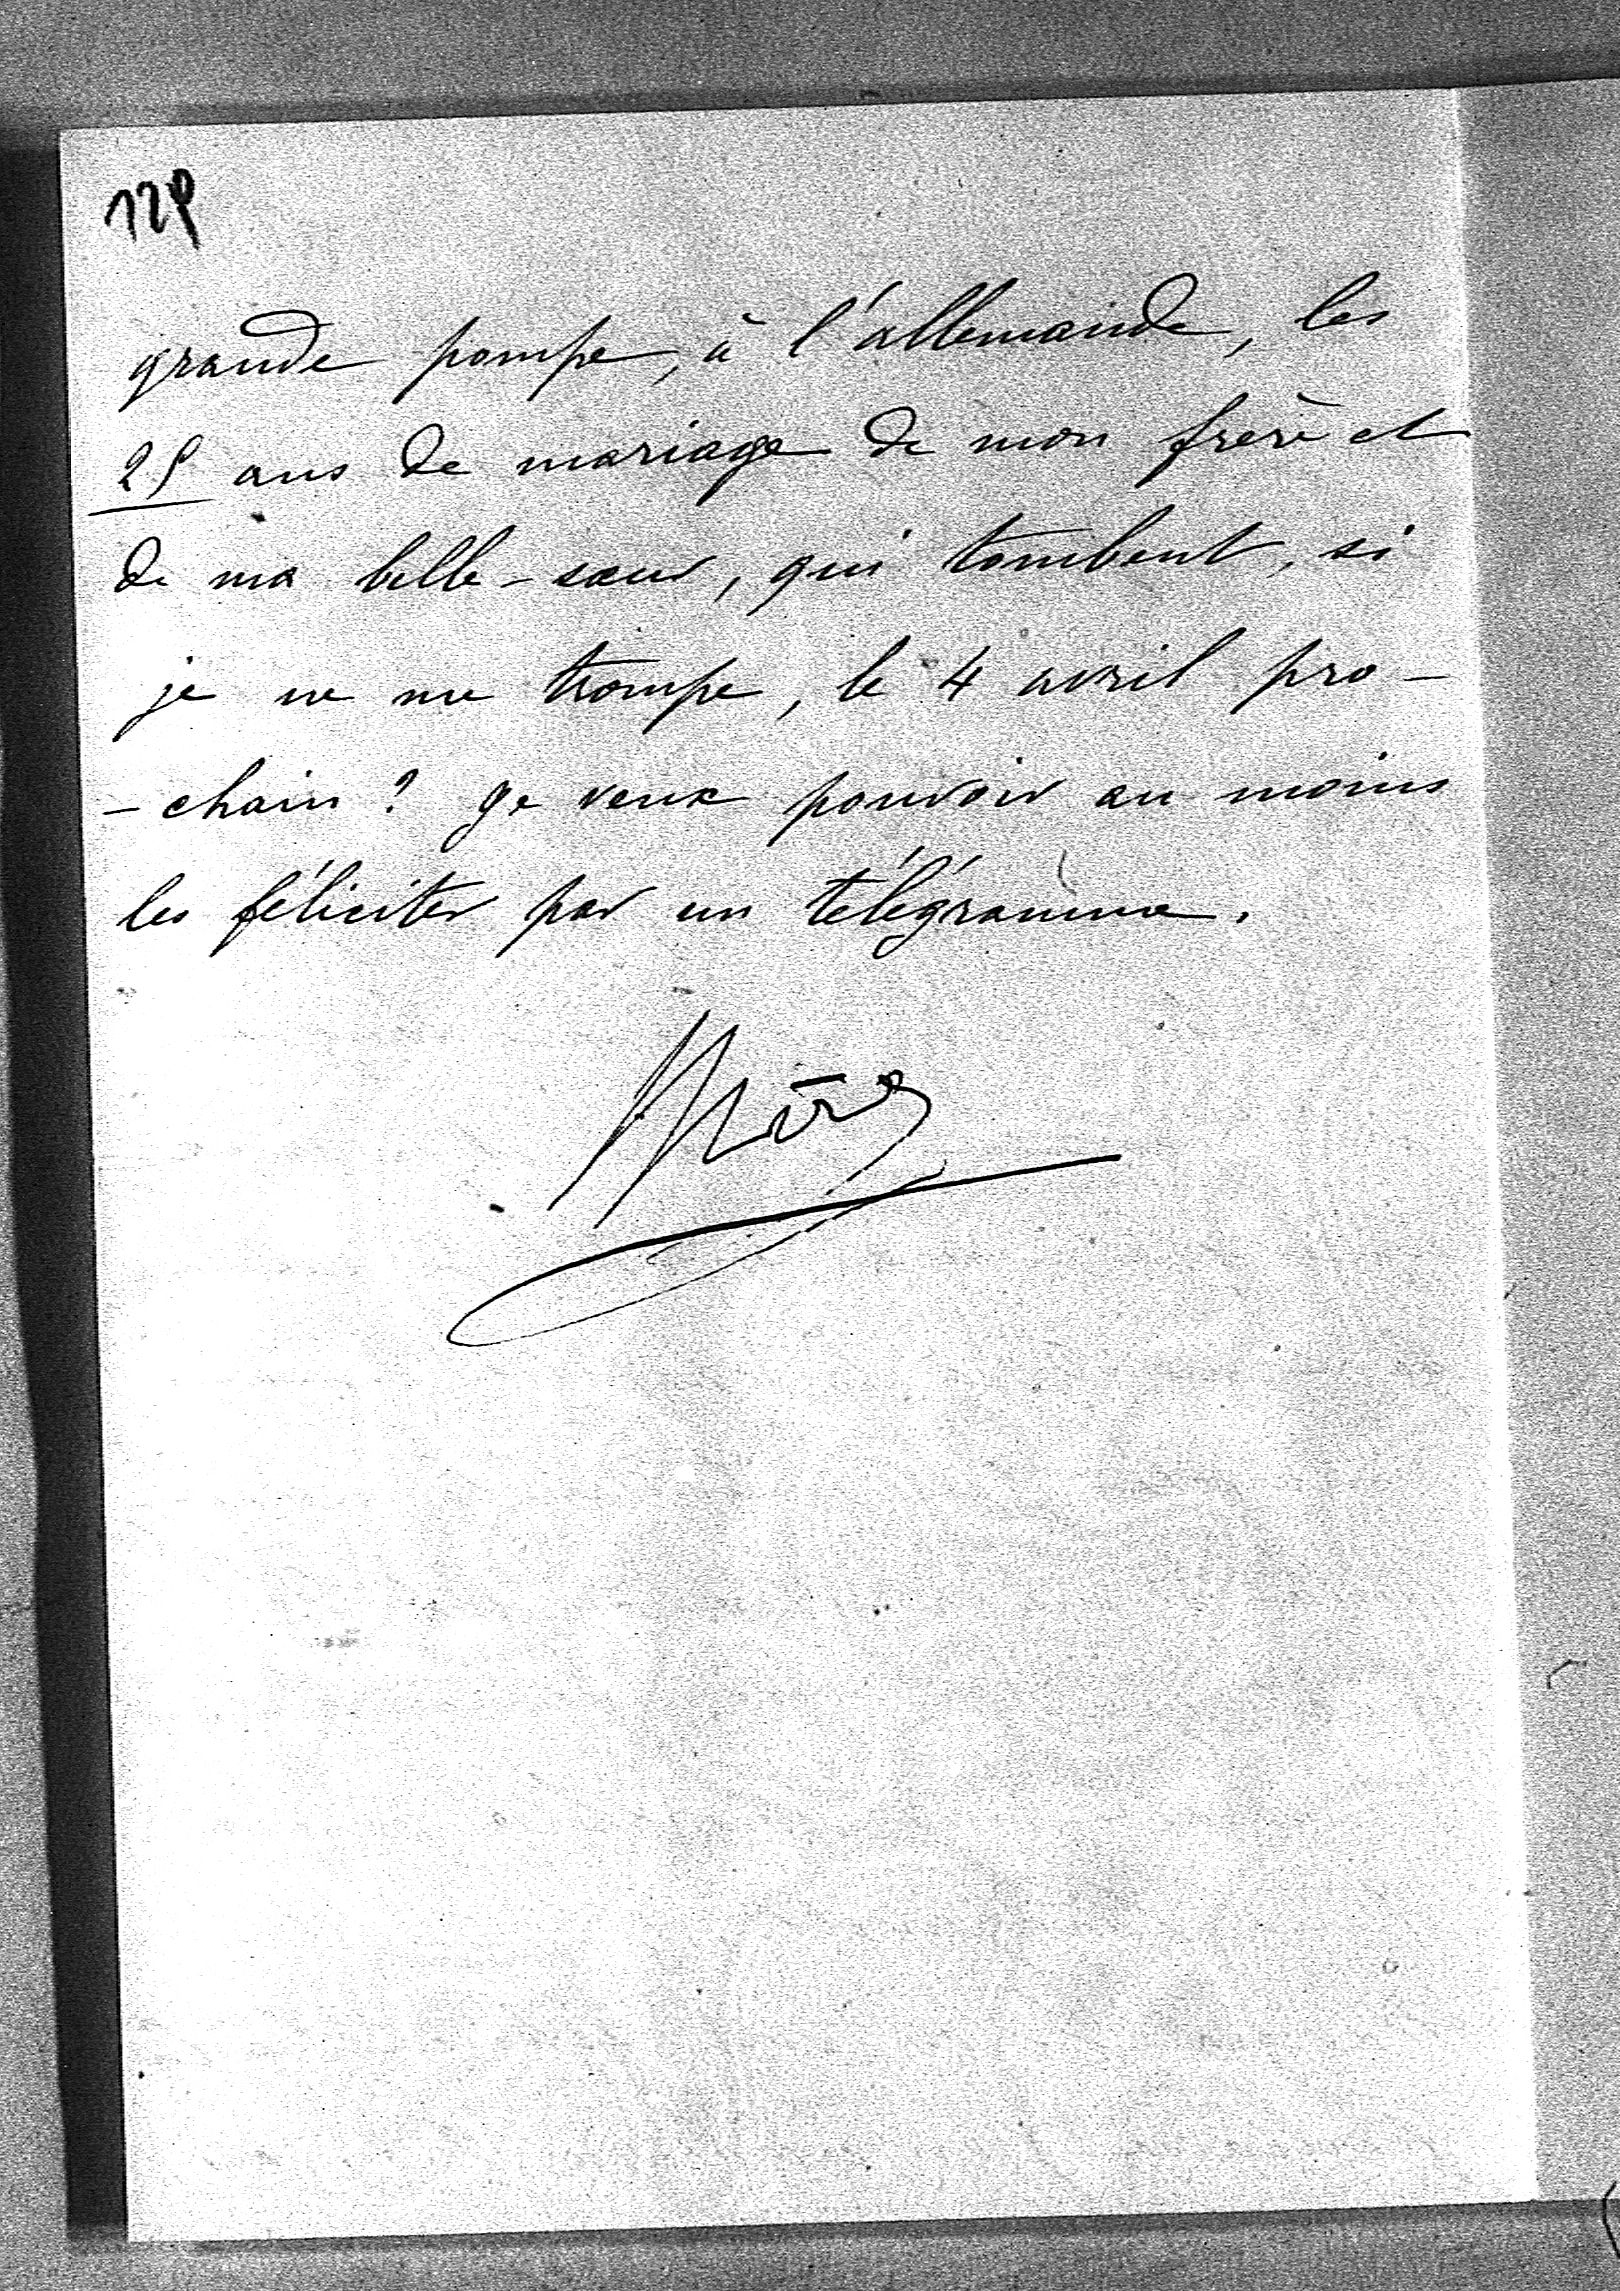 129
grande pompe, à l'allemande, les
25 ans de mariage de mon frère et
de ma belle-sœur, qui tombent, si
je ne me trompe, le 4 avril pro-
-chain ? Je veux pouvoir au moins
les féliciter par un télégramme.